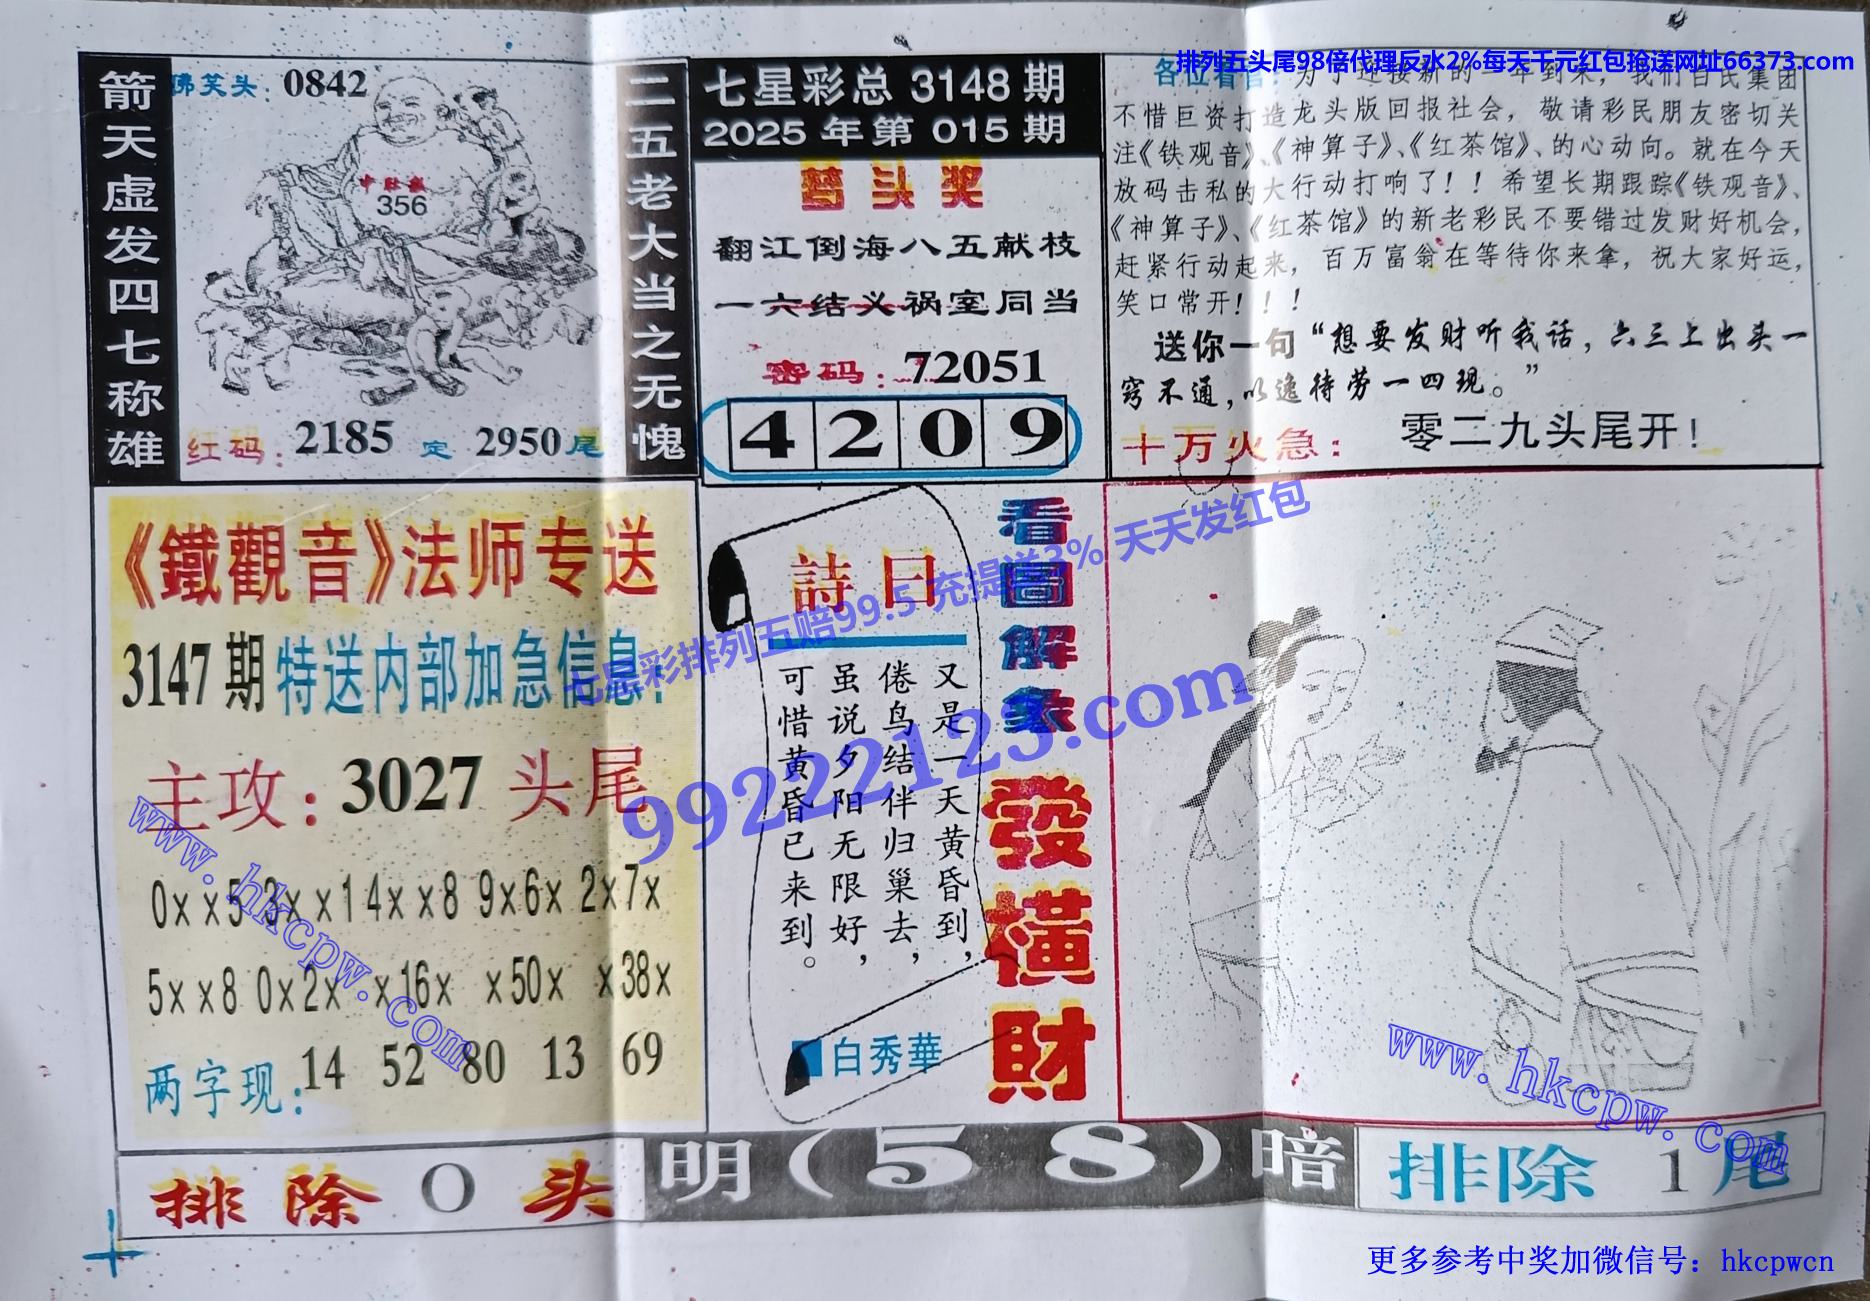 排列五头尾98倍代理反水2%每天千元红包抢送网址66373.com
箭天虚发四七称雄
佛笑头：0842
中肚报
356
红码：2185 定 2950尾
二五老大当之无愧
七星彩总 3148 期
2025 年第 015 期
梦头奖
翻江倒海八五献枝
一六结义祸室同当
密码：72051
4 2 0 9
各位看官：为了迎接新的一年到来，我们自民集团
不惜巨资打造龙头版回报社会，敬请彩民朋友密切关
注《铁观音》、《神算子》、《红茶馆》、的心动向。就在今天
放码击私的大行动打响了！！希望长期跟踪《铁观音》、
《神算子》、《红茶馆》的新老彩民不要错过发财好机会，
赶紧行动起来，百万富翁在等待你来拿，祝大家好运，
笑口常开！！！
送你一句“想要发财听我话，六三上出头一
窍不通，以逸待劳一四现。”
十万火急：零二九头尾开！
《鐵觀音》法师专送
3147期特送内部加急信息：
主攻：3027 头尾
0××5 3××1 4××8 9×6× 2×7×
5××8 0×2× ×16× ×50× ×38×
两字现：14 52 80 13 69
詩曰
又是一天黄昏到，
倦鸟结伴归巢去，
虽说夕阳无限好，
可惜黄昏已来到。
白秀華
看圖解象
發橫財
七星彩排列五赔99.5 充提送3% 天天发红包
99222123.com
www.hkcpw.com
www.hkcpw.com
排除 0 头
明（5 8）暗
排除 1 尾
更多参考中奖加微信号：hkcpwcn